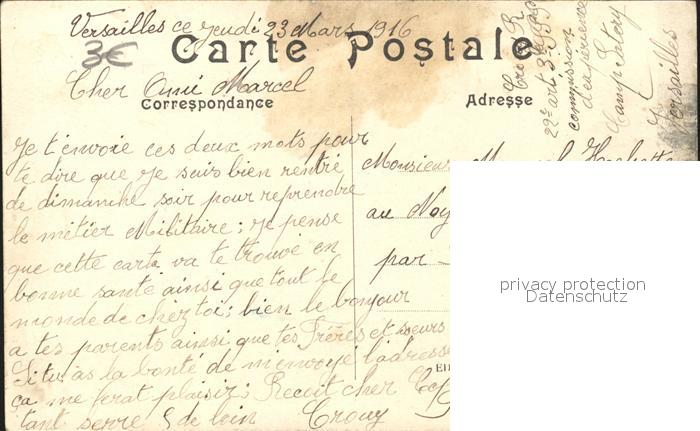 Versailles ce jeudi 23 Mars 1916
3€
Carte Postale
Cher Ami Marcel
Correspondance
Adresse
Crouy R
22e art 3
commission
d'expérience
Camp Satory
Versailles
Je t'envoie ces deux mots pour
te dire que je suis bien rentré
de dimanche soir pour reprendre
le métier Militaire; je pense
que cette carte va te trouvé en
bonne santé ainsi que tout le
monde de chez toi; bien le bonjour
a tes parents ainsi que tes Frères et sœurs
Si tu as la bonté de m'envoyé l'adresse
ça me ferat plaisir; Recoit cher
tant serre 5 de loin Crouy
Monsieur Marcel
au Noy
par
privacy protection
Datenschutz